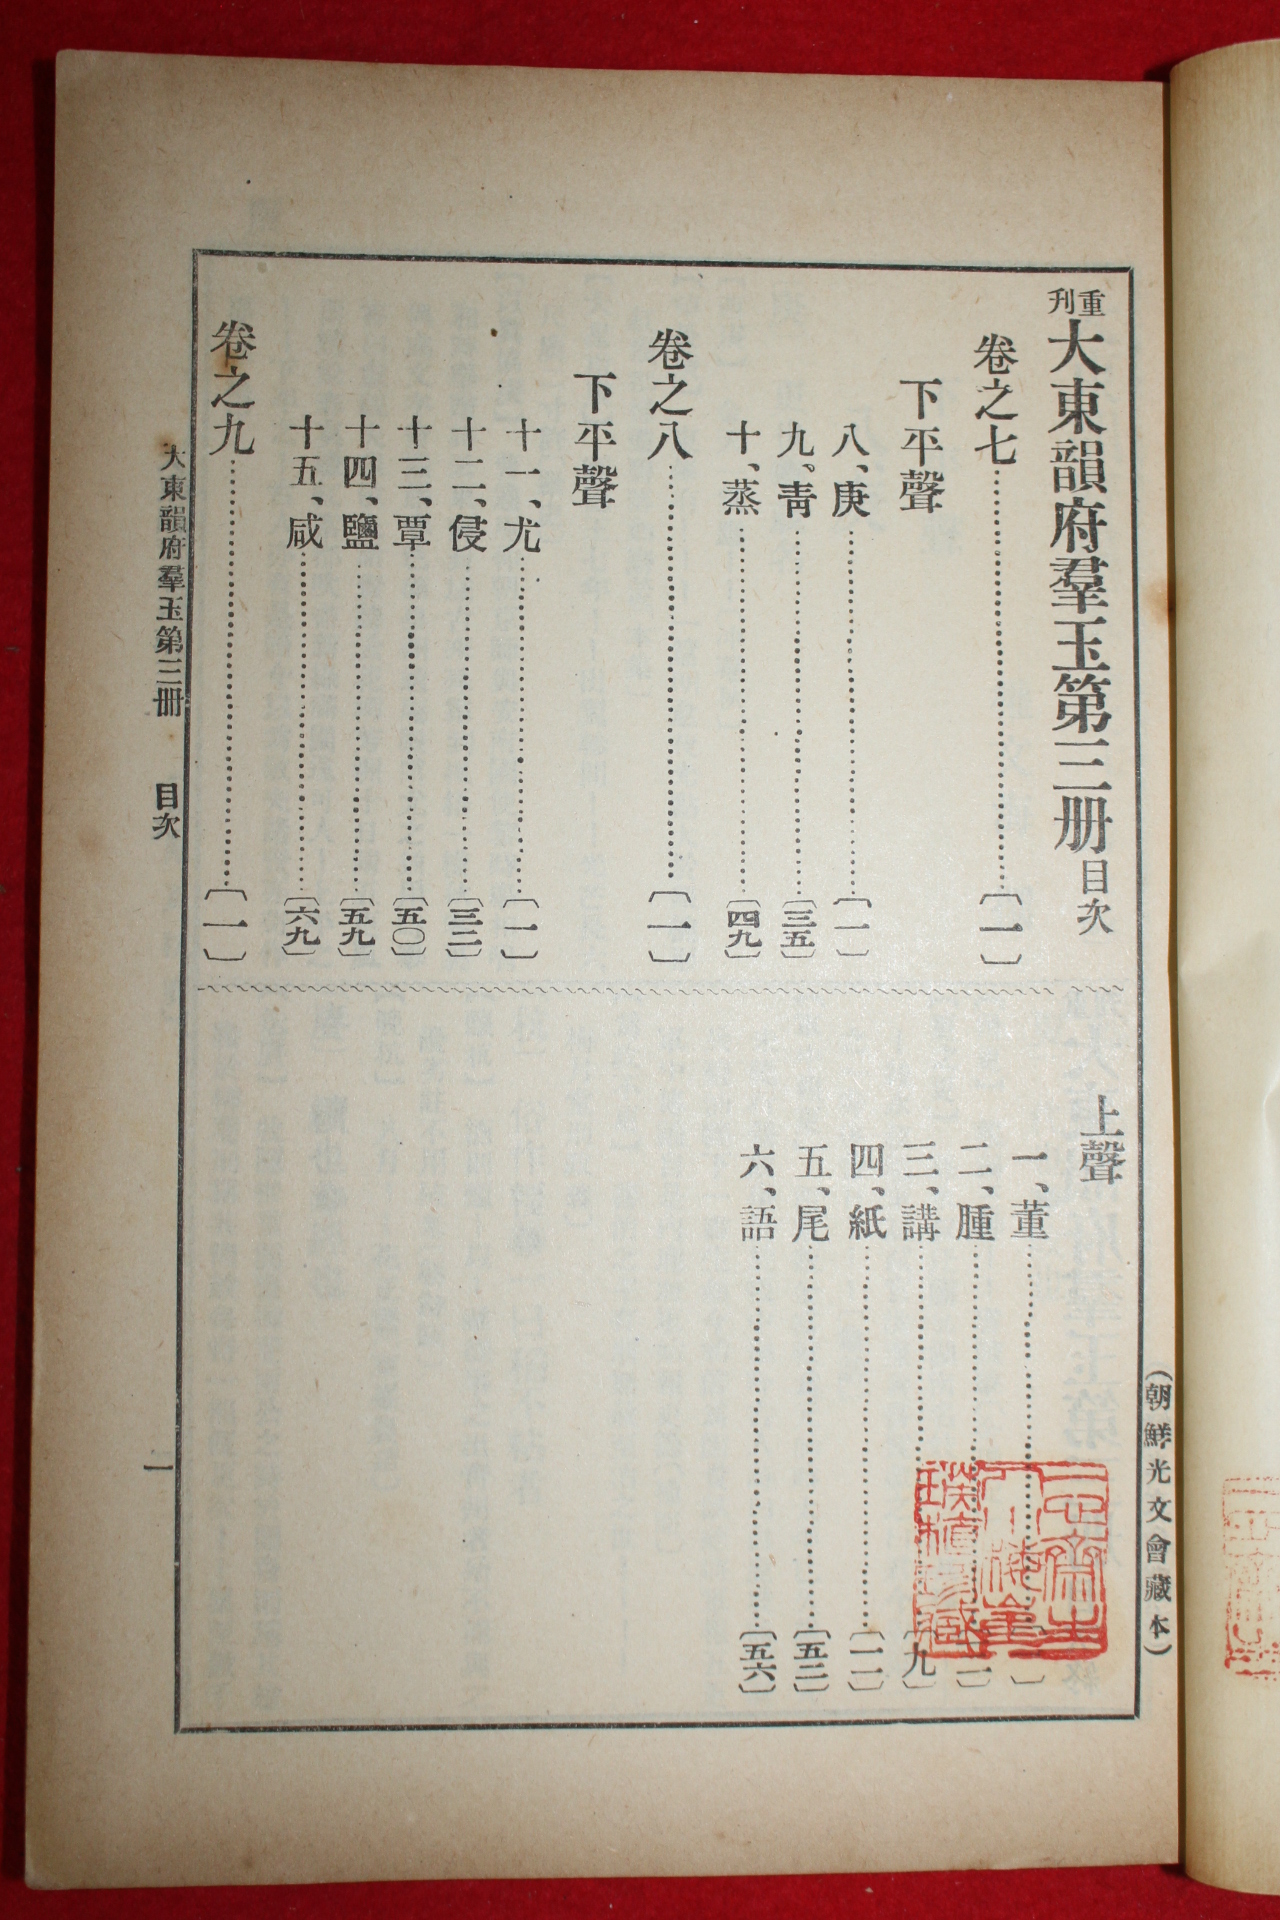 重刊大東韻府羣玉第三册目次
卷之七……〔一〕
下平聲
八、庚……〔一〕
九、靑……〔三五〕
十、蒸……〔四九〕
卷之八……〔一〕
下平聲
十一、尤……〔一〕
十二、侵……〔三二〕
十三、覃……〔五〇〕
十四、鹽……〔五九〕
十五、咸……〔六九〕
卷之九……〔一〕
上聲
一、董……〔一〕
二、腫……
三、講……〔九〕
四、紙……〔一一〕
五、尾……〔五二〕
六、語……〔五六〕
(朝鮮光文會藏本)
大東韻府羣玉第三册 目次
一